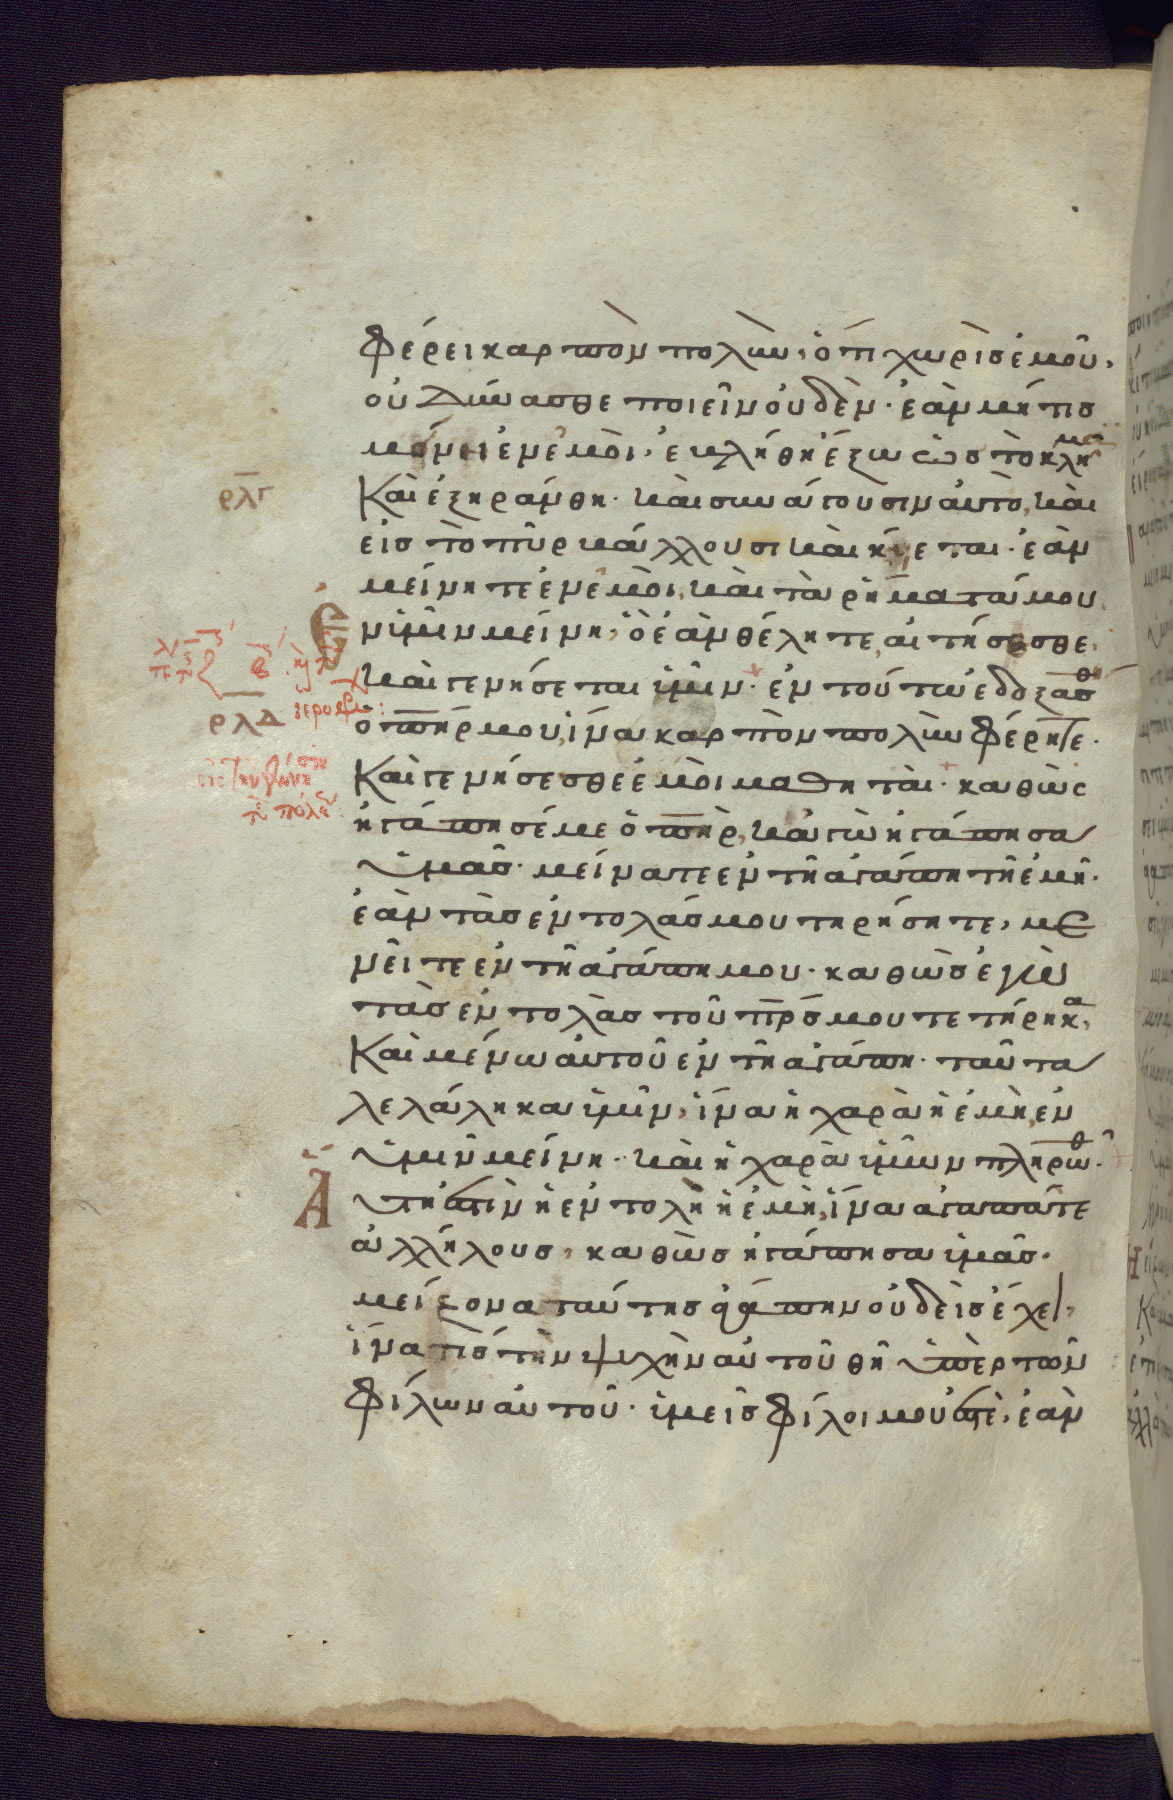 φέρει καρπὸν πολὺν, ὅτι χωρὶς ἐμοῦ,
οὐ δύνασθε ποιεῖν οὐδὲν· ἐὰν μή τις
μείνη ἐν ἐμοὶ, ἐκλήθη ἔξω ὡς τὸ κλῆμα
ρλγ
Καὶ ἐξηράνθη· καὶ συνάγουσιν αὐτὸ, καὶ
εἰς τὸ πῦρ βάλλουσι καὶ καίεται· ἐὰν
μείνητε ἐν ἐμοὶ, καὶ τὰ ῥήματά μου
ἐν ὑμῖν μείνη, ὃ ἐὰν θέλητε, αἰτήσεσθε,
καὶ γενήσεται ὑμῖν· ἐν τούτω ἐδοξάσθ
ρλδ
ὁ πηρ μου, ἵνα καρπὸν πολὺν φέρητε·
Καὶ γενήσεσθε ἐμοὶ μαθηταὶ· καθὼς
ἠγάπησέ με ὁ πηρ, κἀγὼ ἠγάπησα
ὑμᾶς· μείνατε ἐν τῆ ἀγάπη τῆ ἐμῆ·
ἐὰν τὰς ἐντολάς μου τηρήσητε, με
νεῖτε ἐν τῆ ἀγάπη μου· καθὼς ἐγὼ
τὰς ἐντολὰς τοῦ πρς μου τετήρηκα,
Καὶ μένω αὐτοῦ ἐν τῆ ἀγάπη· ταῦτα
λελάληκα ὑμῖν, ἵνα ἡ χαρὰ ἡ ἐμὴ, ἐν
ὑμῖν μείνη· καὶ ἡ χαρὰ ὑμῶν πληρωθῆ·
Αὕτη ἐστὶν ἡ ἐντολὴ ἡ ἐμὴ, ἵνα ἀγαπᾶτε
ἀλλήλους, καθὼς ἠγάπησα ὑμᾶς·
μείζονα ταύτης ἀγάπην οὐδεὶς ἔχει,
ἵνα τὶς τὴν ψυχὴν αὐτοῦ θῆ ὑπὲρ τῶν
φίλων αὐτοῦ· ὑμεῖς φίλοι μου ἐστὲ, ἐὰν